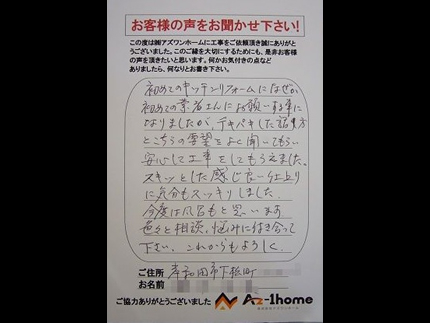 お客様の声をお聞かせ下さい!
この度は㈱アズワンホームに工事をご依頼頂き誠にありがと
うございました。このご縁を大切にするためにも、是非お客様
の声を頂きたいと思います。何かお気付きの点など
ありましたら、何なりとお書き下さい。
初めてのキッチンリフォームになぜか
初めての業者さんにお願いする事に
なりましたが、テキパキした話し方
とこちらの要望をよく聞いてもらい
安心して工事をしてもらえました。
スキッとした感じ良い仕上り
に気分もスッキリしました
今度は風呂もと思います
色々と相談、悩みに付き合って
下さい。これからもよろしく
ご住所 岸和田市下松町
お名前
ご協力ありがとうございました
Az-1home
株式会社アズワンホーム